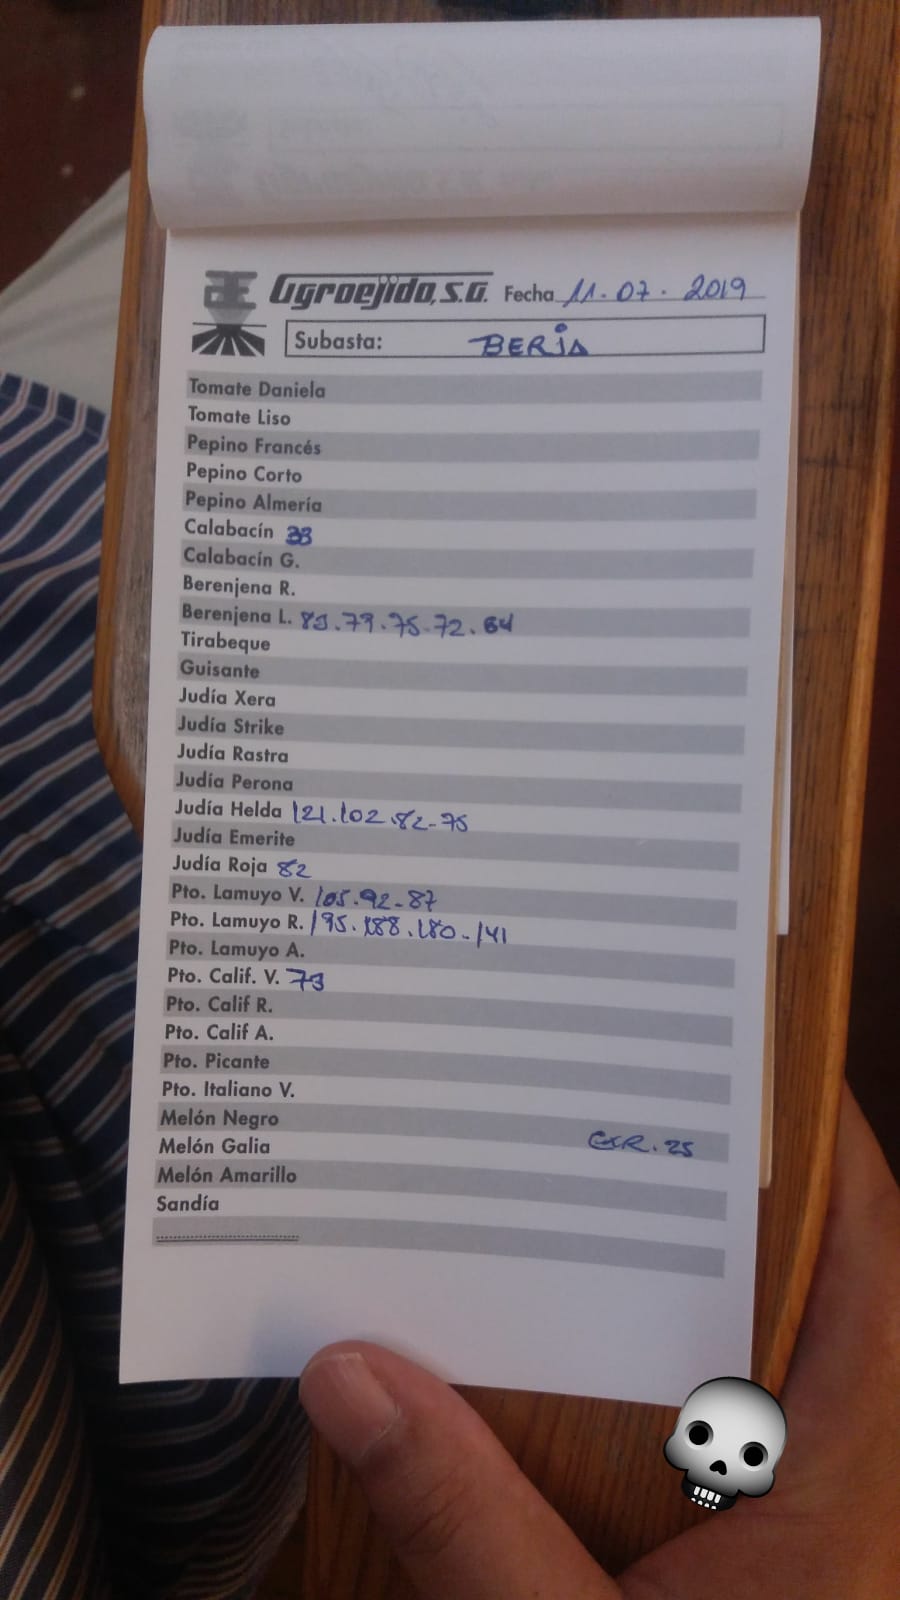 Agroejido, S.A. Fecha 11.07.2019
Subasta: BERJA
Tomate Daniela
Tomate Liso
Pepino Francés
Pepino Corto
Pepino Almería
Calabacín 33
Calabacín G.
Berenjena R.
Berenjena L. 83.79.75-72.64
Tirabeque
Guisante
Judía Xera
Judía Strike
Judía Rastra
Judía Perona
Judía Helda 121.102.82-75
Judía Emerite
Judía Roja 82
Pto. Lamuyo V. 105.92-87
Pto. Lamuyo R. 195.188.180-141
Pto. Lamuyo A.
Pto. Calif. V. 73
Pto. Calif R.
Pto. Calif A.
Pto. Picante
Pto. Italiano V.
Melón Negro
Melón Galia 25
Melón Amarillo
Sandía